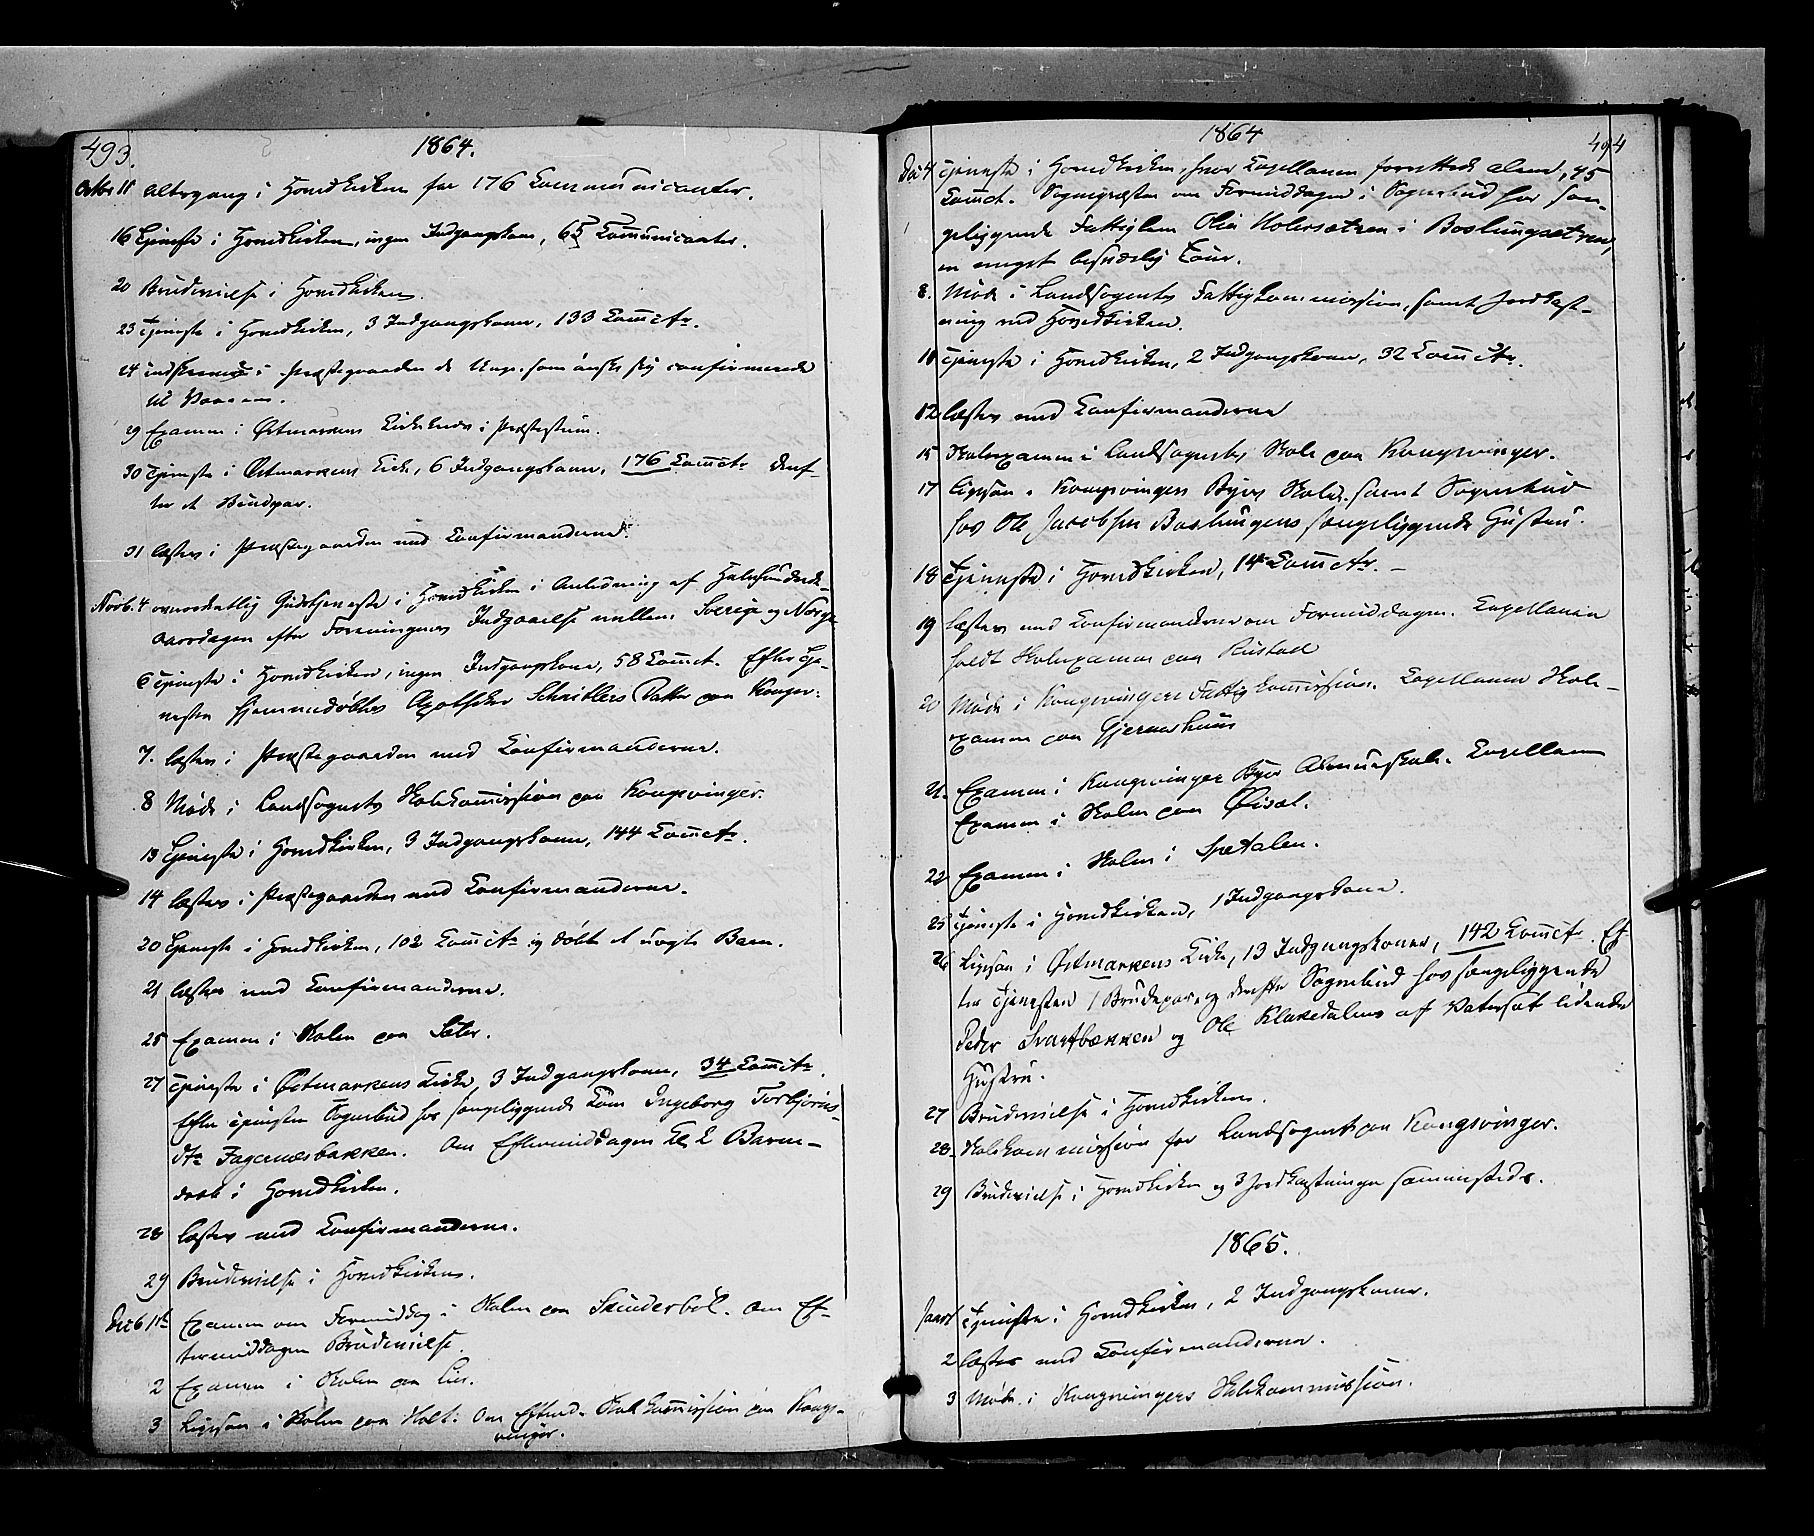 493.
1864.
Octbr 11 Altergang i Hovedkirken for 176 Communicanter.
16 Tjeneste i Hovedkirken, ingen Indgangskone, 65 Communicanter.
20 Brudevielse i Hovedkirken.
23 Tjeneste i Hovedkirken, 3 Indgangskoner, 133 Comctr.
24 indskrevet i Præstegaarden de Unge som ønske sig confirmerede
til Vaaren.
29 Examen i Østmarkens Kirkekreds i
30 Tjeneste i Østmarkens Kirke, 6 Indgangskoner, 176 Comctr. Deref-
ter et Brudepar.
31 læstes i Præstegaarden med Confirmanderne.
Novb. 4 overordentlig Gudstjeneste i Hovedkirken i Anledning af Halvhundrede-
aarsdagen efter Foreningens Indgaaelse mellem Sverige og Norge
6 Tjeneste i Hovedkirken, ingen Indgangskone, 58 Comct. Efter Tje-
nesten hjemmedøbtes Apotheker Schnitlers Datter paa Kongsv:
7. læstes i Præstegaarden med Confirmanderne.
8 Møde i Landsognets Skolekomission paa Kongsvinger.
13 Tjeneste i Hovedkirken, 3 Indgangskoner, 144 Comctr.
14 læstes i Præstegaarden med Confirmanderne.
20 Tjeneste i Hovedkirken, 102 Comctr. og døbt et uægte Barn.
21 læstes med Confirmanderne.
25 Examen i Skolen paa Sæter.
27 Tjeneste i Østmarkens Kirke, 3 Indgangskoner, 34 Comctr.
Efter Tjenesten Sognebud hos sengeliggende Kone Ingeborg Torbjørns-
dtr Fagernæsbakken. Om Eftermiddagen Kl 2 Barne-
daab i Hovedkirken.
28 læstes med Confirmanderne.
29 Brudevielse i Hovedkirken.
Decb 1ste Examen om Formiddag i Skolen paa Skinderbøl. Om Ef-
termiddagen Brudevielse.
2 Examen i Skolen paa Lier.
3 Ligesaa i Skolen paa Holt. Om Eftmd. Skolekomission paa Kongs-
vinger.
1864
494
Dec 4 Tjeneste i Hovedkirken, hvor Capellanen forrettede alene, 45
Comct. Sognepræsten om Formiddagen i Sognebud hos sen-
geliggende Fattiglem Olia Holersætren i Baslungsætren,
en meget besværlig Tour.
8. Møde i Landsognets Fattigkommission, samt Jordkast-
ning ved Hovedkirken.
11 Tjeneste i Hovedkirken, 2 Indgangskoner, 32 Comctr.
12 læstes med Confirmanderne
15 Skoleexamen i Landsognets Skole paa Kongsvinger.
17 Ligesaa i Kongsvingers Byes Skole, samt Sognebud
hos Ole Jacobsen Baslungens sengeliggende Hustru.
18 Tjeneste i Hovedkirken, 14 Comctr. –
19 læstes med Confirmanderne om Formiddagen. Capellanen
holdt Skoleexamen paa Rustad
20 Møde i Kongsvingers Fattigkomission. Capellanen Skole-
examen paa Gjerneshuus
21. Examen i Kongsvinger Byes Almueskole. Capellanen
Examen i Skolen paa Øisæt.
22 Examen i Skolen i Spetalen.
25 Tjeneste i Hovedkirken, 1 Indgangskone.
26 Ligesaa i Østmarkens Kirke, 13 Indgangskoner, 142 Comctr. Ef-
ter Tjenesten 1 Brudepar, og derefter Sognebud hos sengeliggende
Peder Svartbækken og Ole Klakedalens af Vatersot lidende
Hustru.
27 Brudevielse i Hovedkirken.
28. Skolekommission for Landsognet paa Kongsvinger.
29 Brudevielse i Hovedkirken og 3 Jordkastninger sammesteds.
1865.
Januar 1 Tjeneste i Hovedkirken, 2 Indgangskoner.
2 læstes med Confirmanderne.
3 Møde i Kongsvingers Skolekommission.